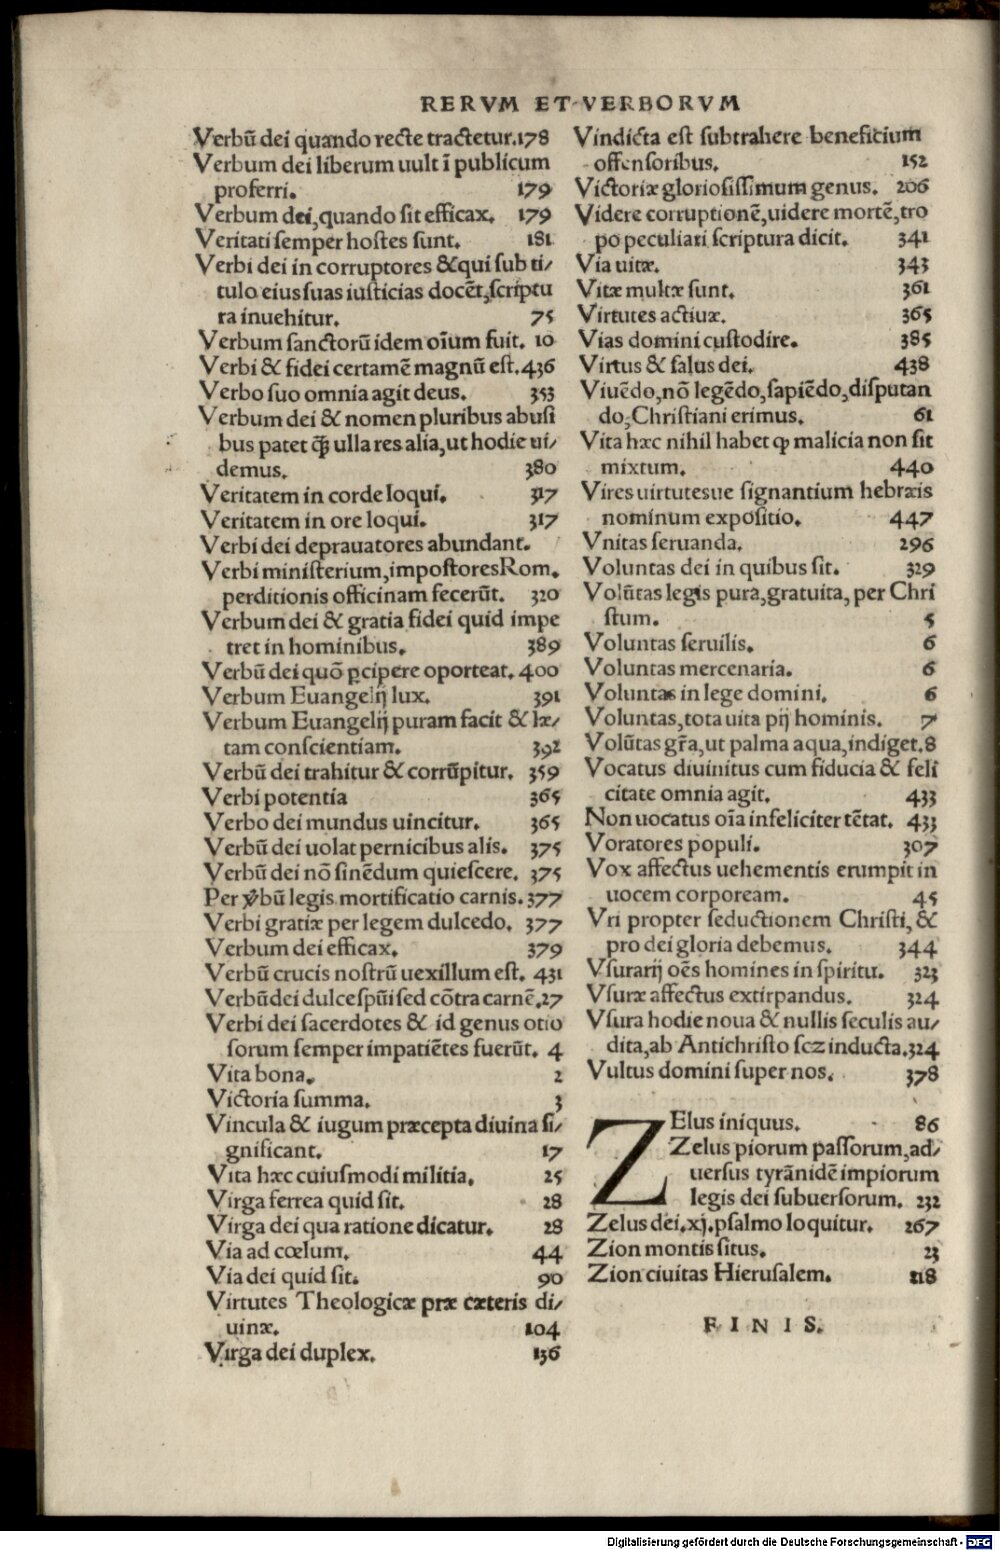 RERVM ET VERBORVM
Verbũ dei quando recte tractetur. 178
Verbum dei liberum uult ĩ publicum
proferri. 179
Verbum dei, quando sit efficax. 179
Veritati semper hostes sunt. 181
Verbi dei in corruptores & qui sub ti/
tulo eius suas iusticias docẽt, scriptu
ra inuehitur. 75
Verbum sanctorũ idem oĩum fuit. 10
Verbi & fidei certamẽ magnũ est. 436
Verbo suo omnia agit deus. 353
Verbum dei & nomen pluribus abusi
bus patet ꝙ̃ ulla res alia, ut hodie ui/
demus. 380
Veritatem in corde loqui. 317
Veritatem in ore loqui. 317
Verbi dei deprauatores abundant.
Verbi ministerium, impostores Rom.
perditionis officinam fecerũt. 320
Verbum dei & gratia fidei quid impe
tret in hominibus. 389
Verbũ dei quõ ꝑcipere oporteat. 400
Verbum Euangelij lux. 391
Verbum Euangelij puram facit & læ/
tam conscientiam. 392
Verbũ dei trahitur & corrũpitur. 359
Verbi potentia 365
Verbo dei mundus uincitur. 365
Verbũ dei uolat pernicibus alis. 375
Verbũ dei nõ sinẽdum quiescere. 375
Per v̓bũ legis mortificatio carnis. 377
Verbi gratiæ per legem dulcedo. 377
Verbum dei efficax. 379
Verbũ crucis nostrũ uexillum est. 431
Verbũ dei dulce spũi sed cõtra carnẽ. 27
Verbi dei sacerdotes & id genus otio
sorum semper impatiẽtes fuerũt. 4
Vita bona. 2
Victoria summa. 3
Vincula & iugum præcepta diuina si/
gnificant. 17
Vita hæc cuiusmodi militia. 25
Virga ferrea quid sit. 28
Virga dei qua ratione dicatur. 28
Via ad cœlum. 44
Via dei quid sit. 90
Virtutes Theologicæ præ cæteris di/
uinæ. 104
Virga dei duplex. 136
Vindicta est subtrahere beneficium
offensoribus. 152
Victoriæ gloriosissimum genus. 206
Videre corruptionẽ, uidere mortẽ, tro
po peculiari scriptura dicit. 341
Via uitæ. 343
Vitæ multæ sunt. 361
Virtutes actiuæ. 365
Vias domini custodire. 385
Virtus & salus dei. 438
Viuẽdo, nõ legẽdo, sapiẽdo, disputan
do, Christiani erimus. 61
Vita hæc nihil habet ꝙ malicia non sit
mixtum. 440
Vires uirtutesue signantium hebræis
nominum expositio. 447
Vnitas seruanda. 296
Voluntas dei in quibus sit. 329
Volũtas legis pura, gratuita, per Chri
stum. 5
Voluntas seruilis. 6
Voluntas mercenaria. 6
Voluntas in lege domini. 6
Voluntas, tota uita pij hominis. 7
Volũtas gr̃a, ut palma aqua, indiget. 8
Vocatus diuinitus cum fiducia & feli
citate omnia agit. 433
Non uocatus oĩa infeliciter tẽtat. 433
Voratores populi. 307
Vox affectus uehementis erumpit in
uocem corpoream. 45
Vri propter seductionem Christi, &
pro dei gloria debemus. 344
Vsurarij oẽs homines in spiritu. 323
Vsuræ affectus extirpandus. 324
Vsura hodie noua & nullis seculis au/
dita, ab Antichristo scz inducta. 324
Vultus domini super nos. 378
ZElus iniquus. 86
Zelus piorum passorum, ad/
uersus tyrãnidẽ impiorum
legis dei subuersorum. 232
Zelus dei. xj. psalmo loquitur. 267
Zion montis situs. 23
Zion ciuitas Hierusalem. 218
FINIS.
Digitalisierung gefördert durch die Deutsche Forschungsgemeinschaft - DFG